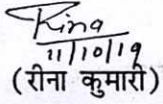 Rina
11/10/19
(रीना कुमारी)